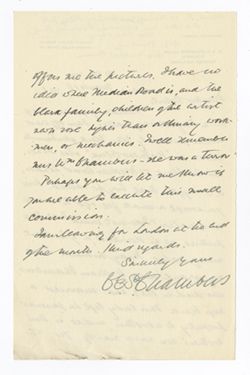 offers me the pictures. I have no
idea where Median Road is, and the
Clark family, children of the artist
have rose higher than ordinary work-
men, or mechanics. I well remember
Mrs Wm Chambers - She was a terror
Perhaps you will let me know if
you are able to execute this small
commission.
I am leaving for London at the end
of the month. Kind regards.
Sincerely yours
C E S Chambers